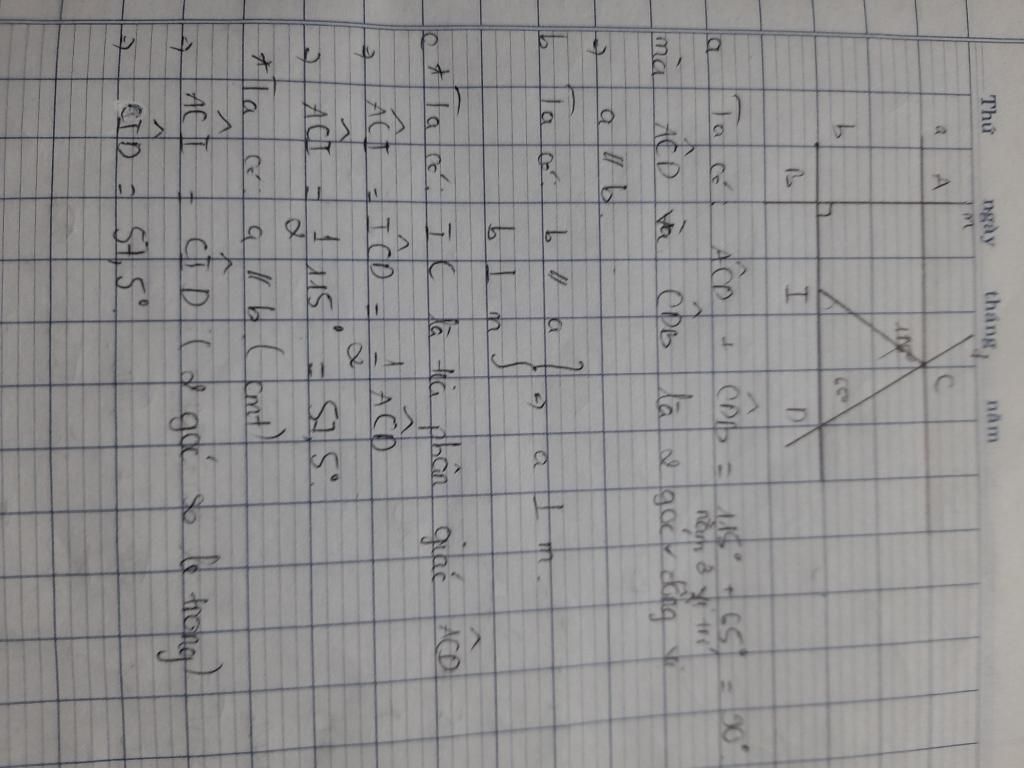 Thứ ngày tháng năm
a A m C
115°
65°
b B I D
a Ta có: AĈD + CD̂B = 115° + 65° = 90°
nằm ở vị trí
mà AĈD và CD̂B là 2 góc
⇒ a // b.
b Ta có: b // a } ⇒ a ⊥ m.
b ⊥ m
c * Ta có: IC là tia phân giác AĈD
⇒ AĈI = IĈD = 1/2 AĈD
⇒ AĈI = 1/2 115° = 57,5°
* Ta có a // b (cmt)
⇒ AĈI = CÎD (2 góc so le trong)
⇒ CÎD = 57,5°